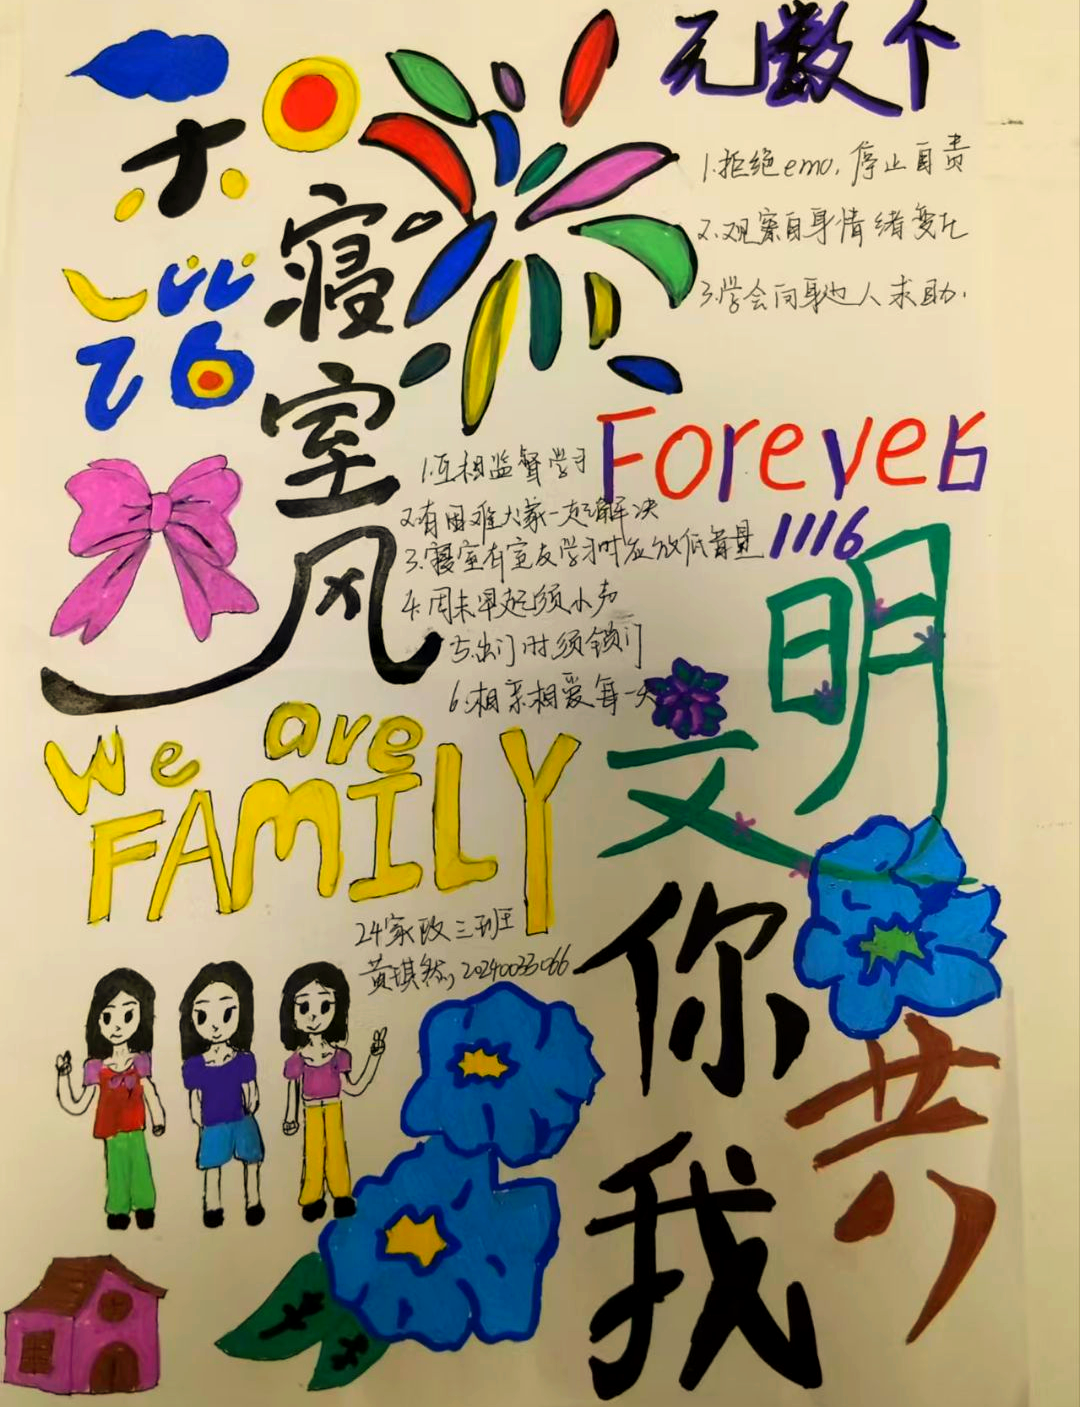 无数个
1.拒绝emo,停止自责
2.观察自身情绪变化
3.学会向身边人求助.
寝室风
1.互相监督学习
2.有困难大家一起解决
3.寝室有室友学习时应放低音量
4.周末早起须小声
5.出门时须锁门
6.相亲相爱每一天
Forever
1116
文明
We are
FAMILY
24家政三班
黄琪然,20240033066
你我
共